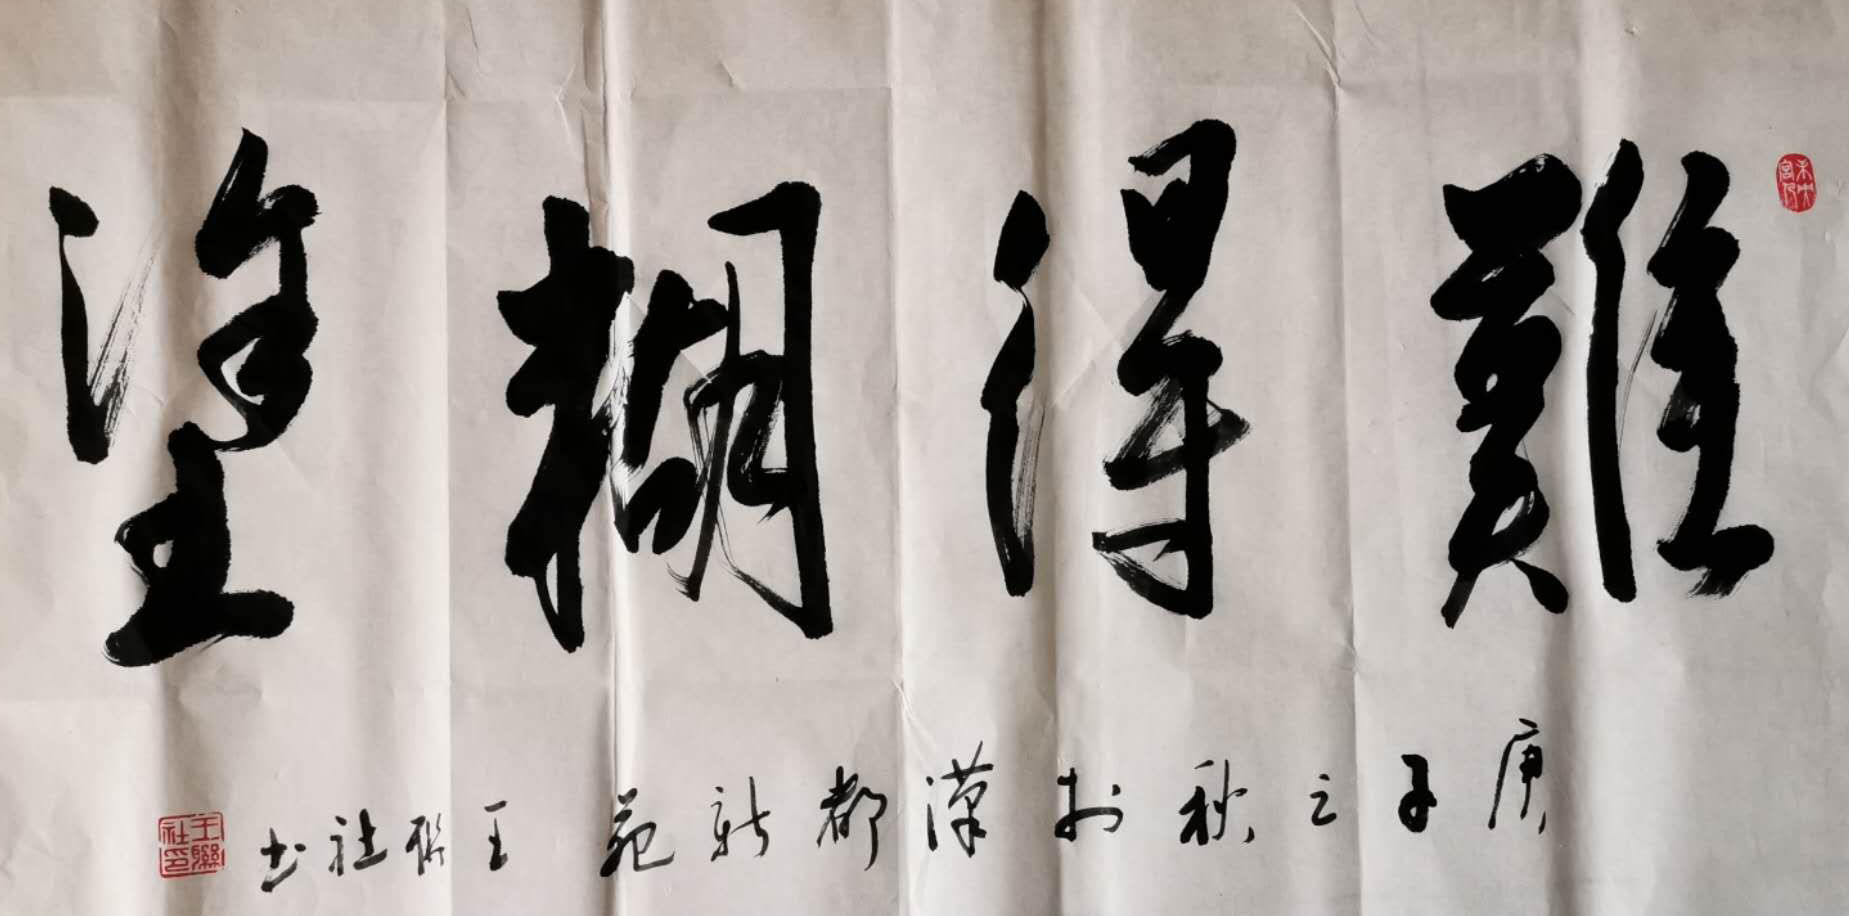 難得糊塗
庚子之秋於漢都新苑 王聯社书
未央宮人
王聯社印